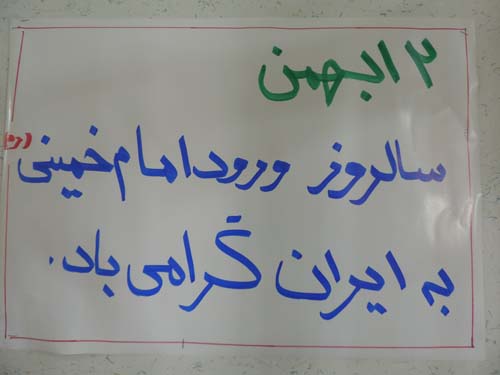 ۱۲ بهمن
سالروز ورود امام خمینی (ره)
به ایران گرامی باد.